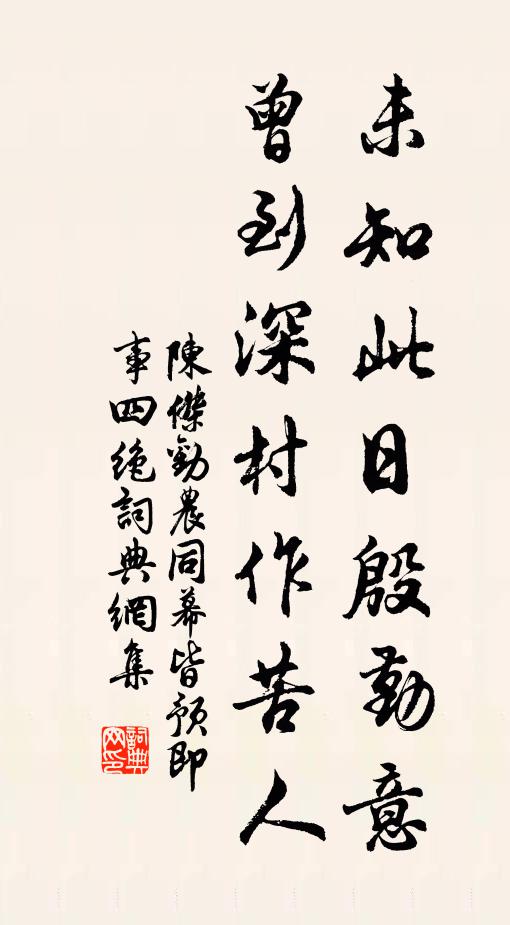 未知此日殷勤意
曾到深村作苦人
陳傑勸農同幕皆預即
事四絶詞典網集
詞典
网印